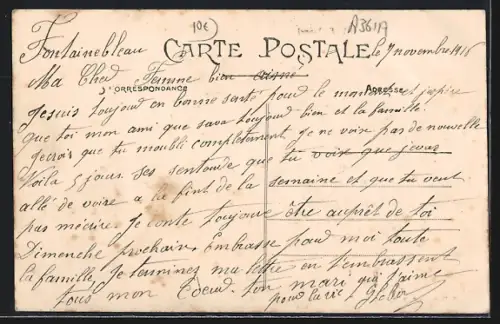 10€
A361A
Fontainebleau
CARTE POSTALE
le 7 novembre 1916
Ma Cher Femme bien aimé
CORRESPONDANCE
ADRESSE
Je suis toujour en bonne santé pour le moment et j'espère
que toi mon ami que sava toujour bien et la famille
je crois que tu moublie complètement je ne voix pas de nouvelle
Voila 5 jours ses sentende que tu voix que jevar
allé de voire a la fint de la semaine et que tu veut
pas mécrire je conte toujour être auprêt de toi
Dimenche prochain Embrasse pour moi toute
la famille, je termines ma lettre en t'embrassent
tous mon Coeur ton mari qui t'aime
pour la vie